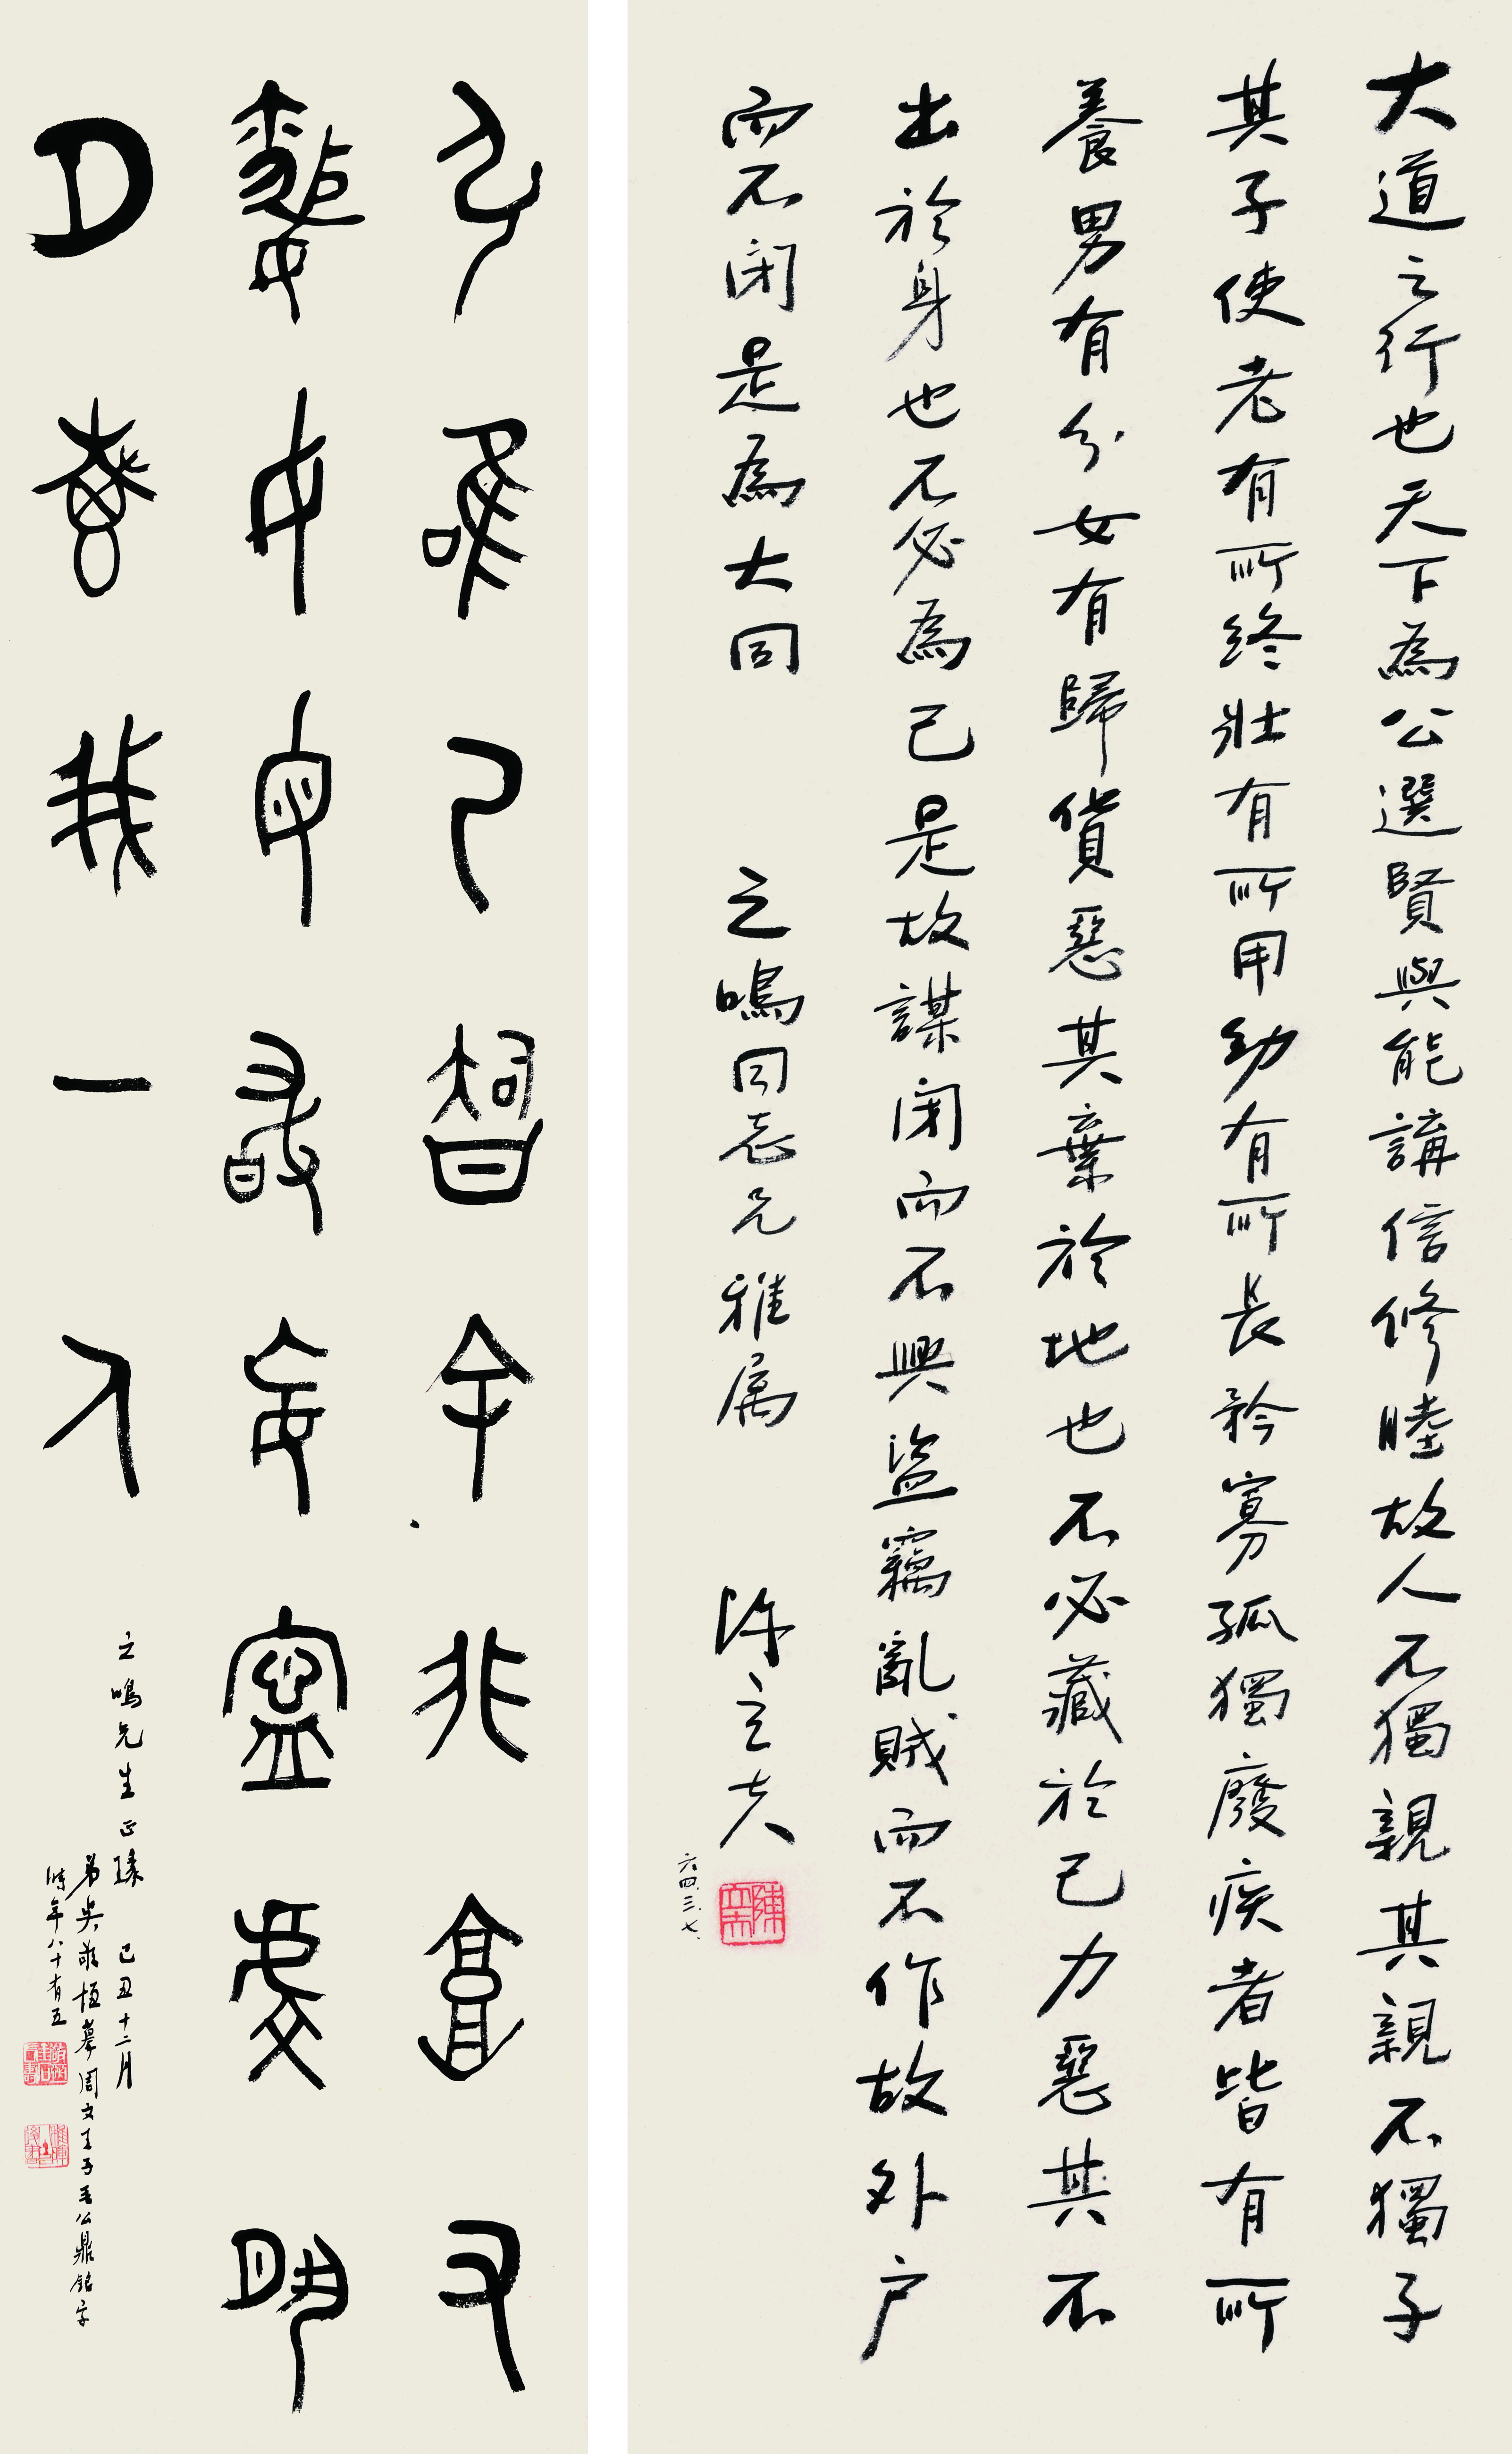 大道之行也天下為公選賢與能講信修睦故人不獨親其親不獨子
其子使老有所終壯有所用幼有所長矜寡孤獨廢疾者皆有所
養男有分女有歸貨惡其棄於地也不必藏於己力惡其不
出於身也不必為己是故謀閉而不興盜竊亂賊而不作故外戶
而不閉是為大同 之鳴同志兄雅属 陳立夫
六四.三.七.
陳立夫
弘唯乃智余非庸又
昏女母敢妄寧虔夙
夕惠我一人
之鳴先生正瑑 己丑十二月
弟吳敬恒摹周文王子毛公鼎銘字
時年八十有五